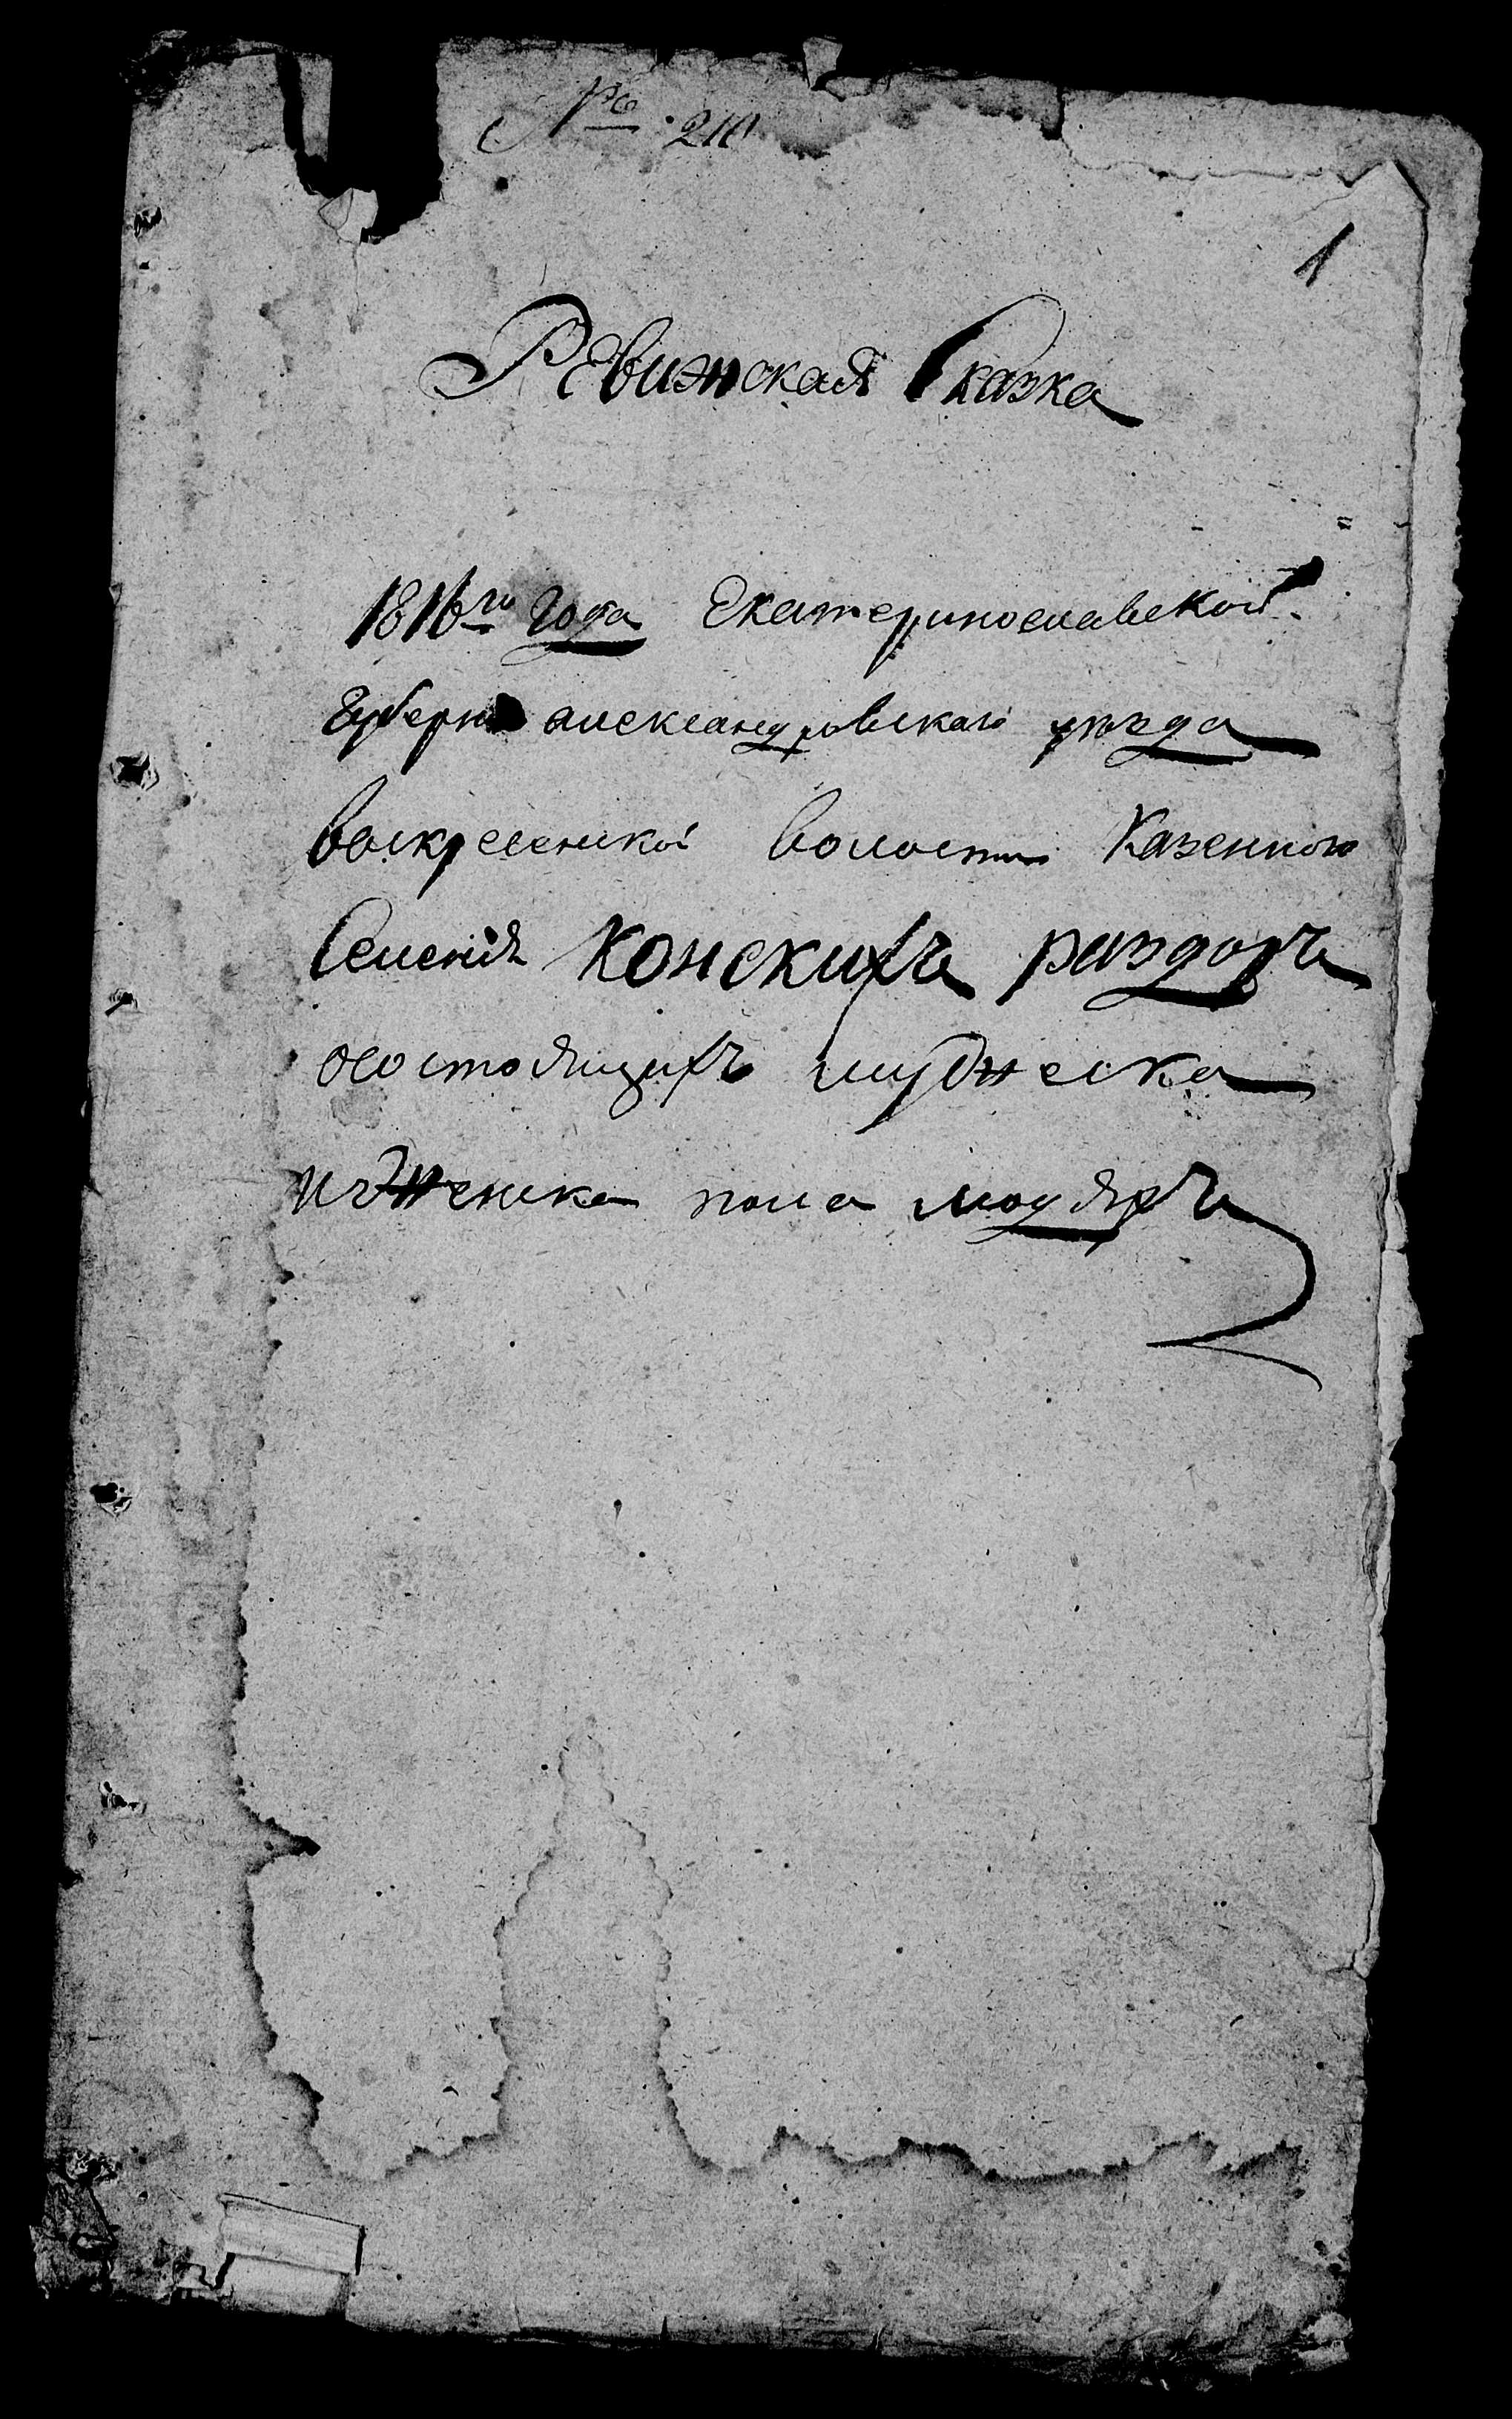 № 210
1
Ревижская Сказка
1816го года Екатеринославской
Губерни александровскаго уезда
воскресенской волости Казенного
Селения Конскихъ раздоръ
осостоящихъ мужеска
иженска пола людяхъ